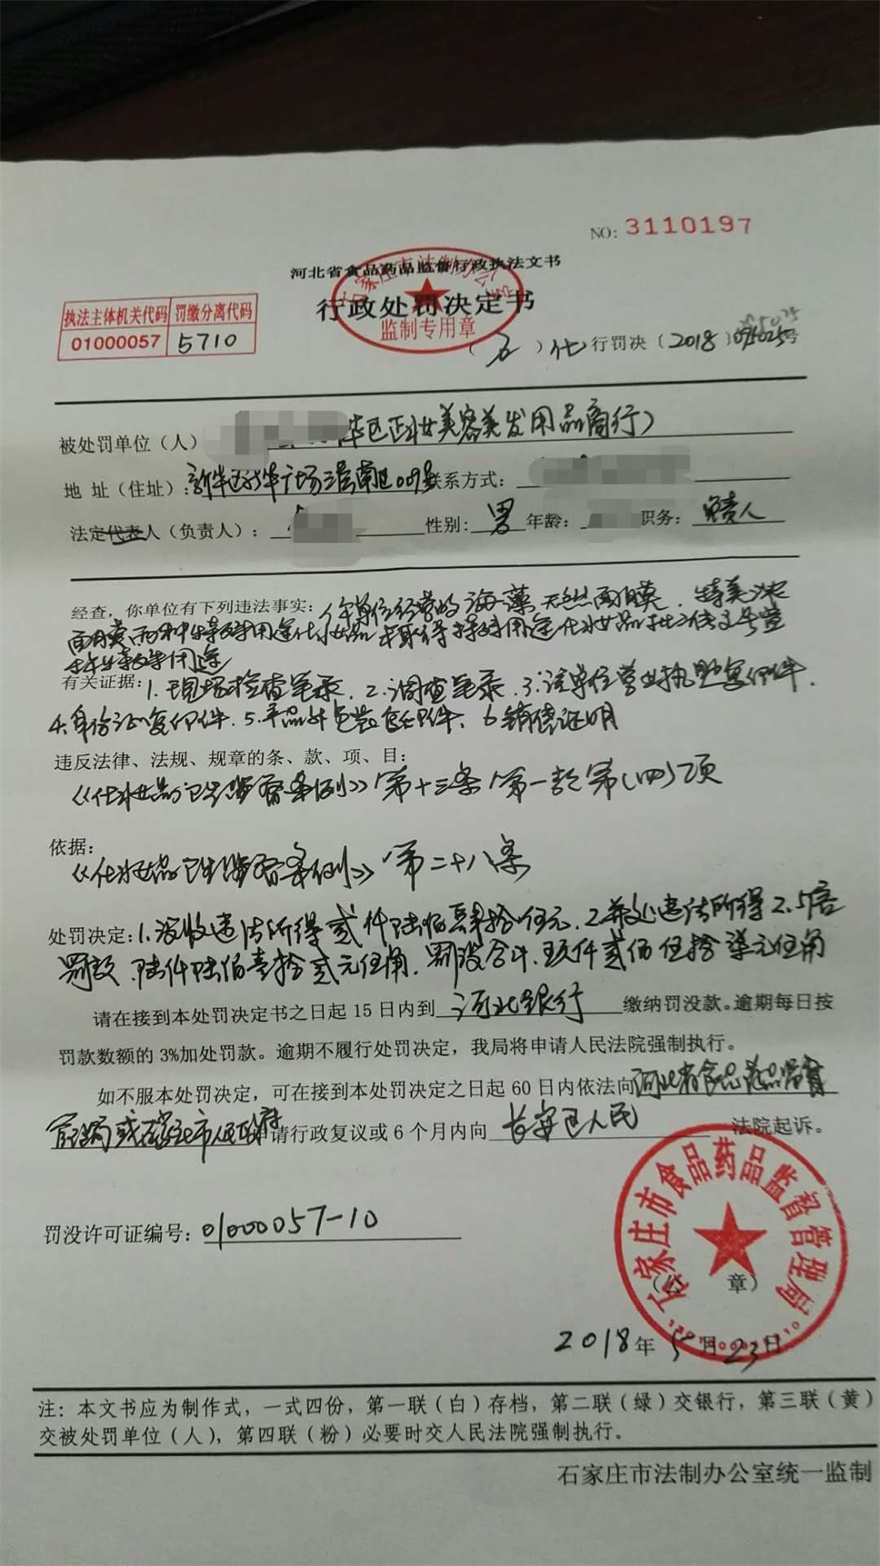 NO: 3110197
河北省食品药品监督行政执法文书
行政处罚决定书
石家庄市法制办公室
监制专用章
执法主体机关代码 罚缴分离代码
01000057 5710
）行罚决〔2018〕 号
被处罚单位（人） 华区 妆美容美发用品商行）
地 址（住址）：新华区 华广场三层南区009 联系方式：
法定代表人（负责人）： 性别：男 年龄： 职务：负责人
经查，你单位有下列违法事实：你单位经营的海藻天然面膜、 美
面膜两种特殊用途化妆品未取得特殊用途化妆品批准文号宣
称特殊用途
有关证据：1.现场检查笔录、2.调查笔录、3.该单位营业执照复印件、
4.身份证复印件、5.产品外包装复印件、6.销售证明
违反法律、法规、规章的条、款、项、目：
《化妆品卫生监督条例》第十三条第一款第(四)项
依据：
《化妆品卫生监督条例》第二十八条
处罚决定：1.没收违法所得贰仟陆佰肆拾伍元、2.并处违法所得2.5倍
罚款 陆仟陆佰壹拾贰元伍角、罚没合计：玖仟贰佰伍拾柒元伍角
请在接到本处罚决定书之日起 15 日内到 河北银行 缴纳罚没款。逾期每日按
罚款数额的 3%加处罚款。逾期不履行处罚决定，我局将申请人民法院强制执行。
如不服本处罚决定，可在接到本处罚决定之日起 60 日内依法向 河北省食品药品监督
管理局或石家庄市人民政府 申请行政复议或 6 个月内向 长安区人民 法院起诉。
罚没许可证编号：01000057-10
石家庄市食品药品监督管理局
（公 章）
2018年5月23日
注：本文书应为制作式，一式四份，第一联（白）存档，第二联（绿）交银行，第三联（黄）
交被处罚单位（人），第四联（粉）必要时交人民法院强制执行。
石家庄市法制办公室统一监制